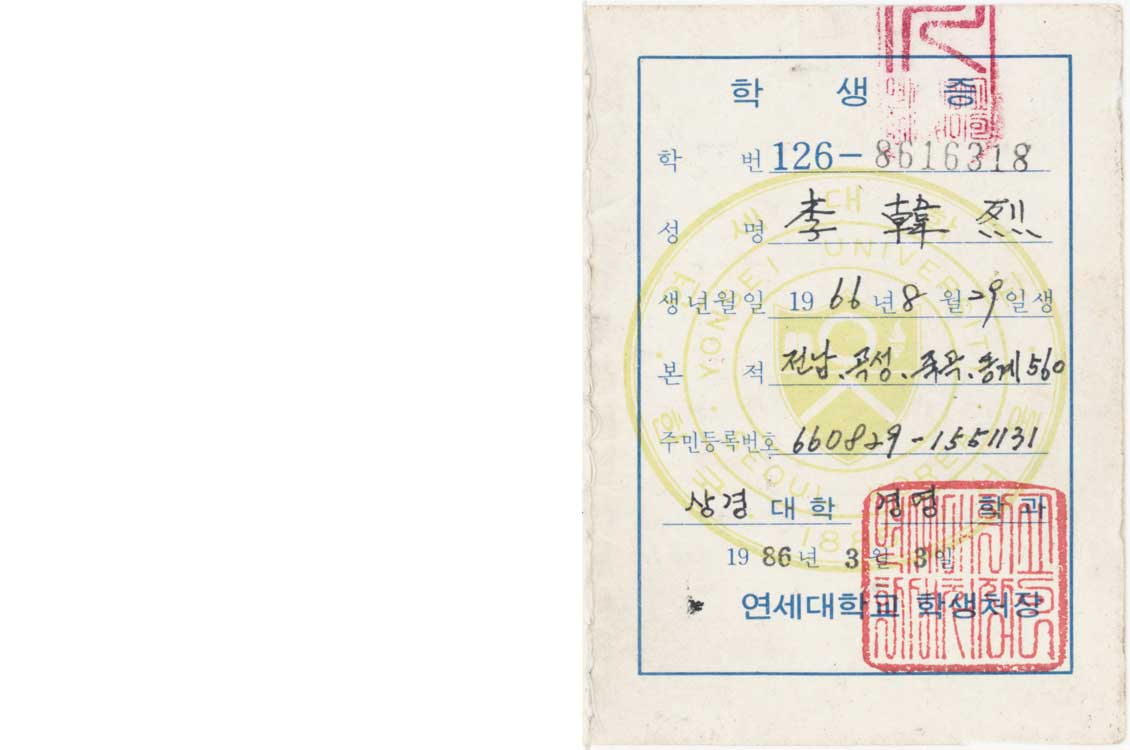 학 생 증
학 번 126-8616318
성 명 李 韓 烈
생년월일 1966년 8월 29일생
본 적 전남、곡성、죽곡、동계 560
주민등록번호 660829-1551131
상경 대학 경영 학과
1986년 3월 3일
연세대학교 학생처장
연세대학교
YONSEI UNIVERSITY